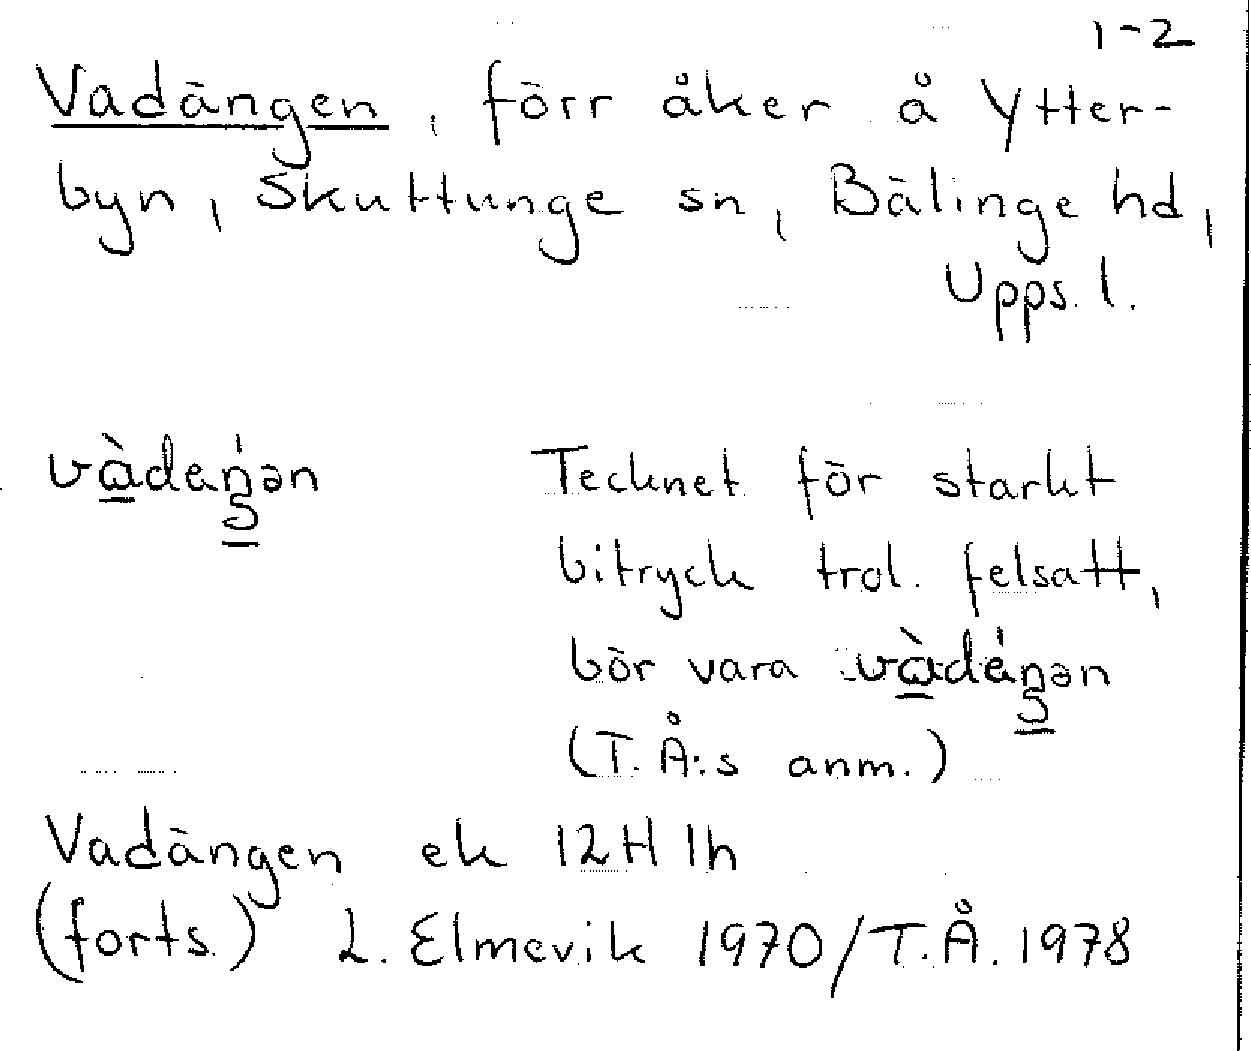 1-2
Vadängen, förr åker å Ytter-
byn, Skuttunge sn, Bälinge hd,
Upps. l.
vàdeŋ́ən Tecknet för starkt
bitryck trol. felsatt,
bör vara vàdéŋən
(T.Å:s anm.)
Vadängen ek 12H 1h
(forts.) L. Elmevik 1970/T.Å. 1978